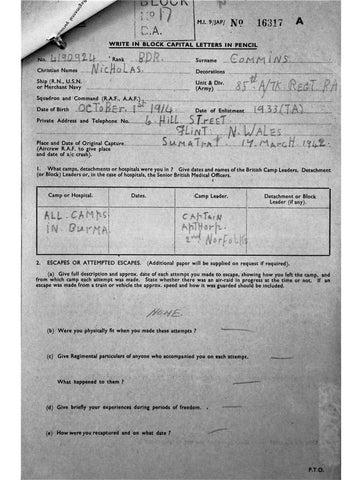 BLOCK
No 17
C.A.
M.I. 9/JAP/ No 16317 A
WRITE IN BLOCK CAPITAL LETTERS IN PENCIL
No. 4190924 Rank BDR. Surname COMMINS
Christian Names NICHOLAS. Decorations
Ship (R.N., U.S.N. or Merchant Navy) Unit & Div. (Army) 85th A/TK REGT. RA
Squadron and Command (R.A.F., A.A.F.)
Date of Birth OCTOBER 1st 1914 Date of Enlistment 1933 (TA)
Private Address and Telephone No. 6 HILL STREET
FLINT, N. WALES
Place and Date of Original Capture SUMATRA 17. MARCH. 1942
(Aircrew R.A.F. to give place
and date of a/c crash).
1. What camps, detachments or hospitals were you in ? Give dates and names of the British Camp Leaders, Detachment
(or Block) Leaders or, in the case of hospitals, the Senior British Medical Officers.
Camp or Hospital. Dates. Camp Leader. Detachment or Block Leader (if any).
ALL CAMPS CAPTAIN
IN BURMA. APTHORP.
2nd NORFOLKS
2. ESCAPES OR ATTEMPTED ESCAPES. (Additional paper will be supplied on request if required).
(a) Give full description and approx. date of each attempt you made to escape, showing how you left the camp, and
from which camp each attempt was made. State whether there was an air-raid in progress at the time or not. If an
escape was made from a train or vehicle the approx. speed and how it was guarded should be included.
NONE.
(b) Were you physically fit when you made these attempts ?
(c) Give Regimental particulars of anyone who accompanied you on each attempt.
What happened to them ?
(d) Give briefly your experiences during periods of freedom.
(e) How were you recaptured and on what date ?
P.T.O.